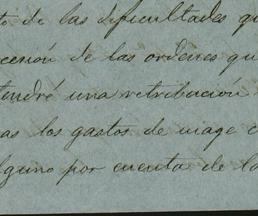 to de las dificultades qu
cesión de las ordenes qu
tendré una retribución
as los gastos de viage c
lguno por cuenta de la